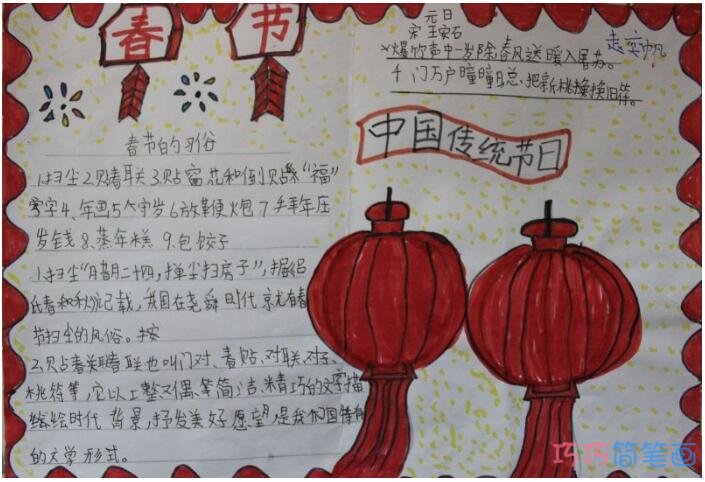 春节
元日
宋 王安石
爆竹声中一岁除春风送暖入屠苏。
千门万户曈曈日总把新桃换旧符。
走奕帆
中国传统节日
春节的习俗
1.扫尘2.贴春联3.贴窗花和倒贴“福”
字4、年画5守岁6放鞭炮7拜年压
岁钱8、蒸年糕 9.包饺子
1.扫尘“腊月二十四,掸尘扫房子”,据《吕
氏春秋》记载,我国在尧舜时代就有春
节扫尘的风俗。按
2.贴春联春联也叫门对、春贴、对联、对子、
桃符等,它以工整对偶、简洁、精巧的文字描
绘时代背景,抒发美好愿望,是我们国特有
的文学形式。
巧巧简笔画